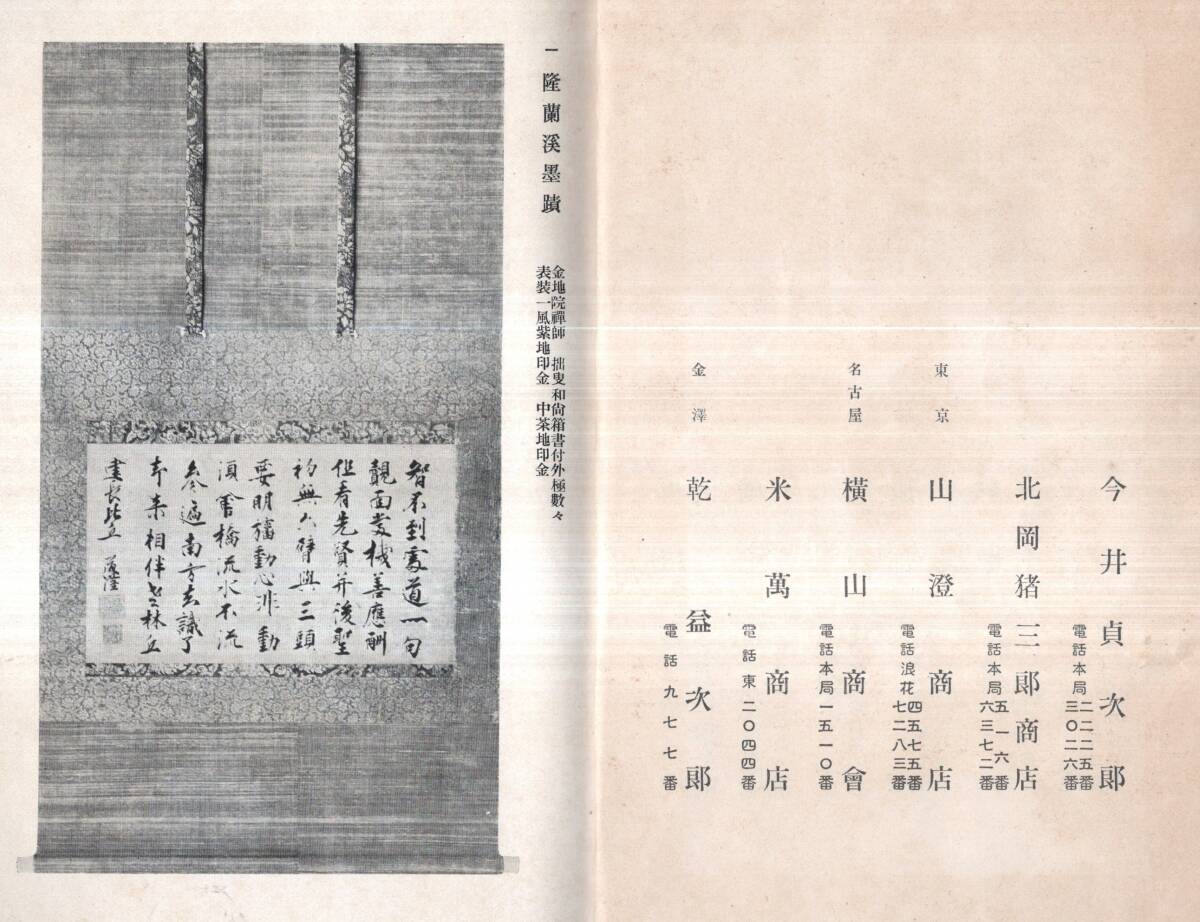 今井貞次郎
電話本局二二二五番
三〇二六番
北岡猪三郎商店
電話本局五一六番
六三七二番
東京
山澄商店
電話浪花四五七五番
七二八三番
名古屋
横山商會
電話本局一五一〇番
米萬商店
電話東二〇四四番
金澤
乾益次郎
電話九七七番
一 隆蘭溪墨蹟
金地院禪師 拙叟和尚箱書付外極數々
表裝一風紫地印金 中茶地印金
智不到處道一句
覿面當機善應酬
但看先賢并後聖
初無六臂與三頭
要明旛動心非動
須會橋流水不流
參遍南方知識了
本来相伴老林丘
比丘 道隆